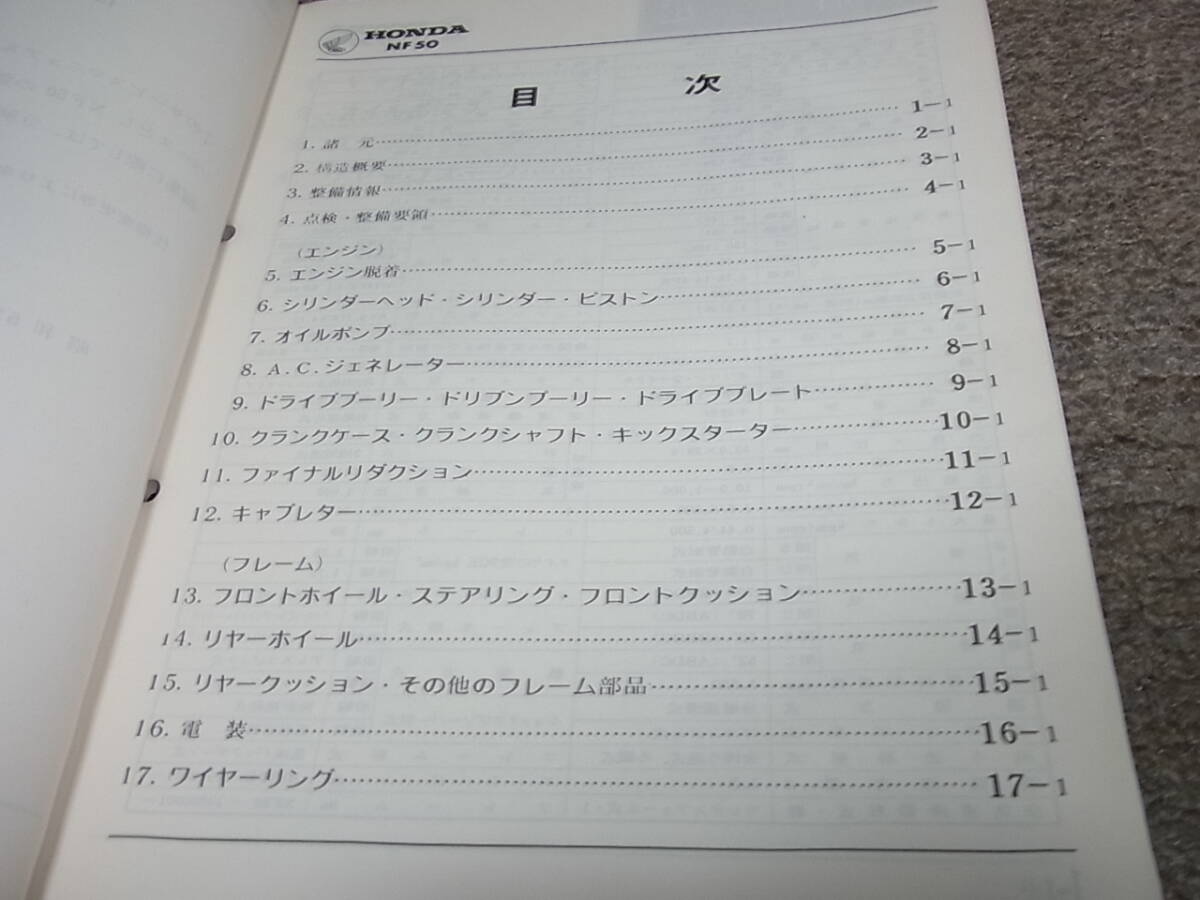 HONDA
NF50
目 次
1. 諸 元……1-1
2. 構造概要……2-1
3. 整備情報……3-1
4. 点検・整備要領……4-1
(エンジン)
5. エンジン脱着……5-1
6. シリンダーヘッド・シリンダー・ピストン……6-1
7. オイルポンプ……7-1
8. A.C.ジェネレーター……8-1
9. ドライブプーリー・ドリブンプーリー・ドライブプレート……9-1
10. クランクケース・クランクシャフト・キックスターター……10-1
11. ファイナルリダクション……11-1
12. キャブレター……12-1
(フレーム)
13. フロントホイール・ステアリング・フロントクッション……13-1
14. リヤーホイール……14-1
15. リヤークッション・その他のフレーム部品……15-1
16. 電 装……16-1
17. ワイヤーリング……17-1